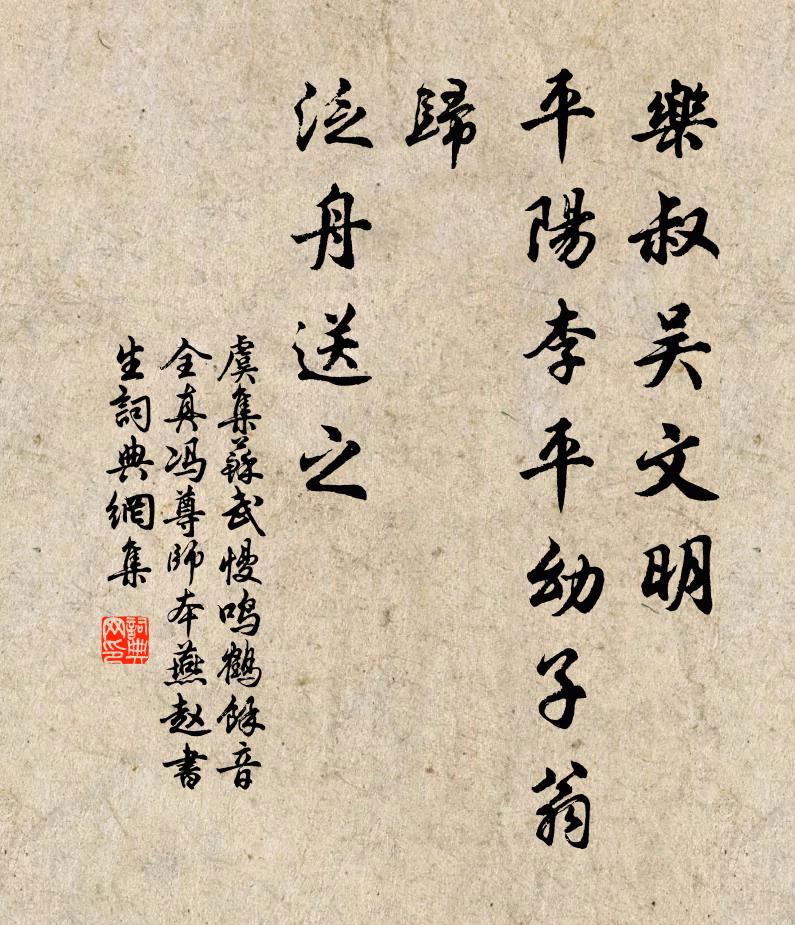 樂叔吴文明
平陽李平幼子翁
歸
泛舟送之
虞集蘇武慢鳴鶴餘音
全真冯尊師本燕赵書
生詞典網集
詞典網印